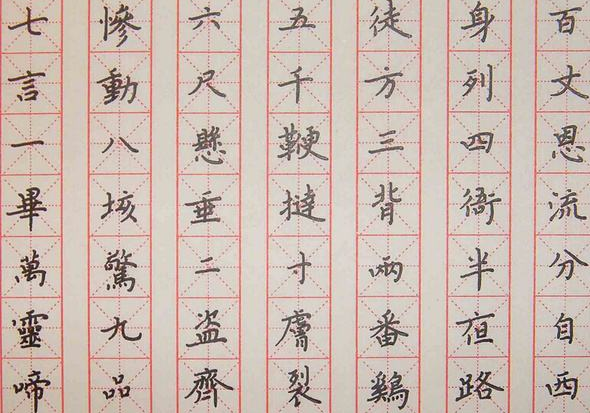 百丈恩流分自西
身列四衙半亱路
徒方三背兩番鷄
五千鞭撻寸膚裂
六尺懸垂二盗齊
慘動八垓驚九品
七言一畢萬靈啼